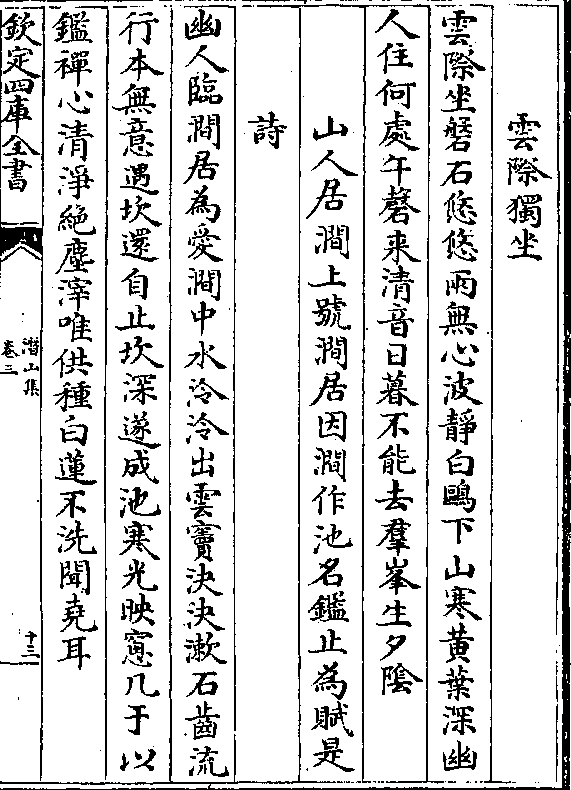 雲際獨坐
雲際坐磐石悠悠兩無心波靜白鷗下山寒黃葉深幽
人住何處午磬来清音日暮不能去羣峯生夕陰
山人居澗上號澗居因澗作池名鑑止為賦是
詩
幽人臨澗居為愛澗中水泠泠出雲竇決決漱石齒流
行本無意遇坎還自止坎深遂成池寒光映窻几于以
鑑禪心清淨絶塵滓唯供種白蓮不洗聞堯耳
欽定四庫全書
潛山集
卷三
十三